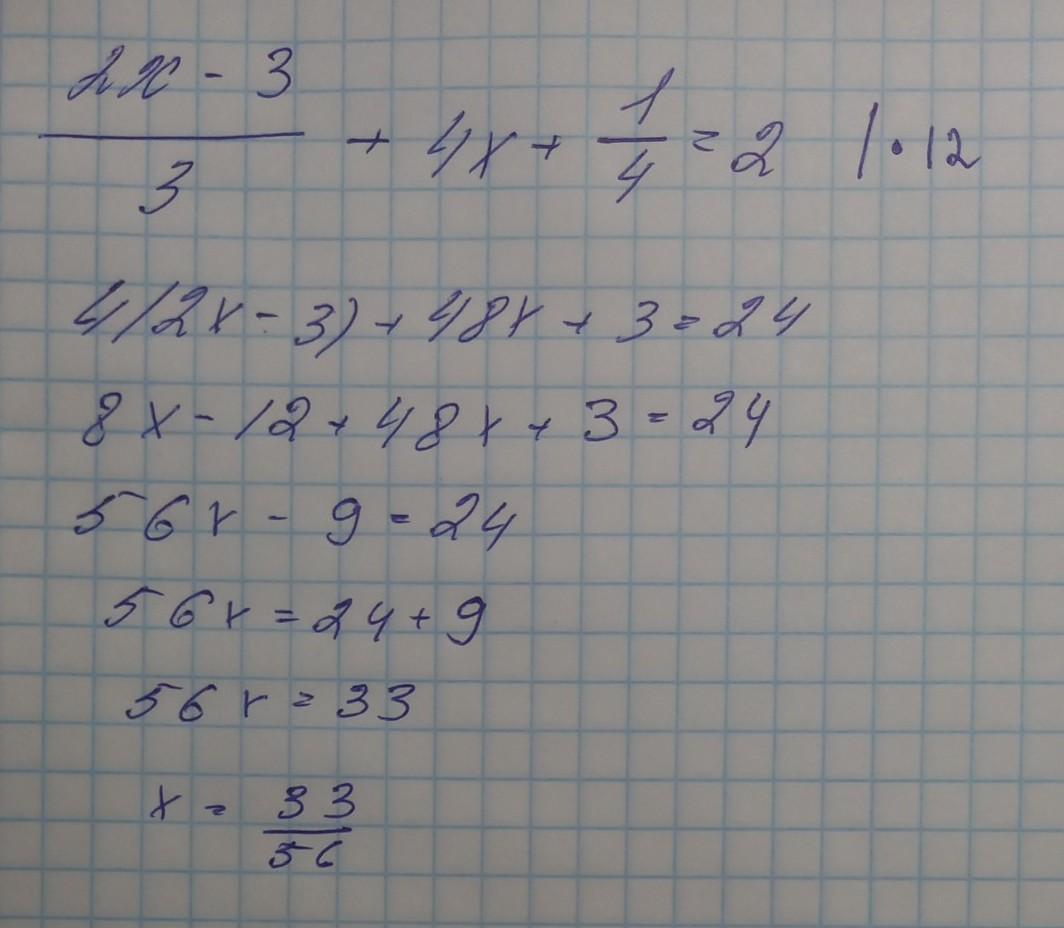 (2x - 3)/3 + 4x + 1/4 = 2 | · 12
4(2x - 3) + 48x + 3 = 24
8x - 12 + 48x + 3 = 24
56x - 9 = 24
56x = 24 + 9
56x = 33
x = 33/56